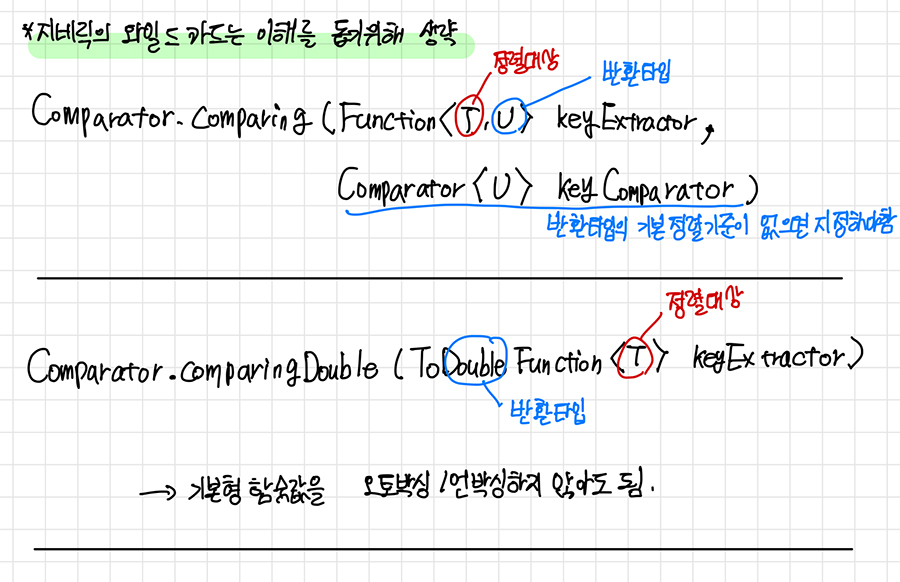 *지네릭의 와일드카드는 이해를 돕기위해 생략
정렬대상
반환타입
Comparator.comparing (Function<T, U> keyExtractor,
Comparator<U> keyComparator)
반환타입의 기본정렬기준이 없으면 지정해야함
정렬대상
Comparator.comparingDouble (ToDoubleFunction<T> keyExtractor)
반환타입
→ 기본형 함숫값을 오토박싱/언박싱하지 않아도 됨.